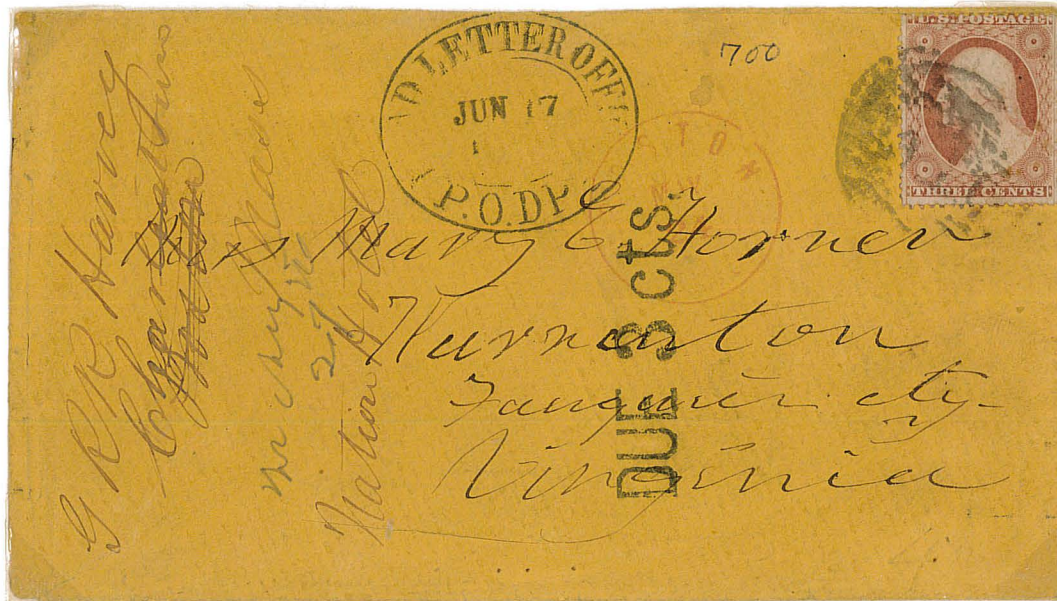 U.S. POSTAGE
THREE CENTS
D LETTER OFF
JUN 17
P.O. DP
700
STON
Miss Mary E Horner
Warrenton
Fauquier cty
Virginia
DUE 3 cts.
G R R Harvey
National Hotel